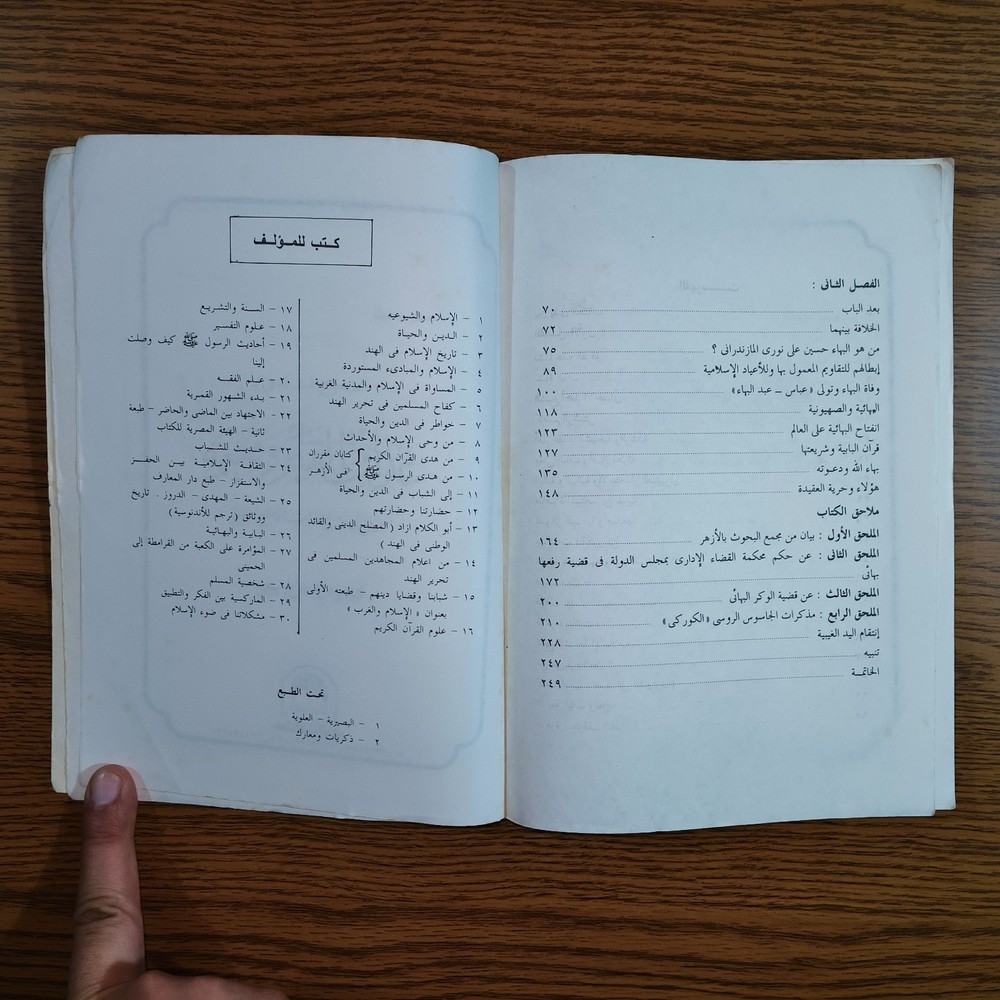 الفصل الثانى :
بعد الباب ٧٠
الخلافة بينهما ٧٢
من هو البهاء حسين على نورى المازندرانى ؟ ٧٥
إبطالهم للتقاويم المعمول بها وللأعياد الإسلامية ٨٩
وفاة البهاء وتولى «عباس – عبد البهاء» ١٠٠
البهائية والصهيونية ١١٨
انفتاح البهائية على العالم ١٢٣
قرآن البابية وشريعتها ١٢٧
بهاء الله ودعوته ١٣٥
هؤلاء وحرية العقيدة ١٤٨
ملاحق الكتاب
الملحق الأول : بيان من مجمع البحوث بالأزهر ١٦٤
الملحق الثانى : عن حكم محكمة القضاء الإدارى بمجلس الدولة فى قضية رفعها
بهائى ١٧٢
الملحق الثالث : عن قضية الوكر البهائى ٢٠٠
الملحق الرابع : مذكرات الجاسوس الروسى «الكوركى» ٢١٠
إنتقام اليد الغيبية ٢٢٨
تنبيه ٢٤٧
الخاتمـة ٢٤٩
كتب للمؤلف
١ – الإسلام والشيوعيه
٢ – الدين والحياة
٣ – تاريخ الإسلام فى الهند
٤ – الإسلام والمبادىء المستوردة
٥ – المساواة فى الإسلام والمدنية الغربية
٦ – كفاح المسلمين فى تحرير الهند
٧ – خواطر فى الدين والحياة
٨ – من وحى الإسلام والأحداث
٩ – من هدى القرآن الكريم } كتابان مقرران
١٠ – من هدى الرسول ﷺ } فى الأزهر
١١ – إلى الشباب فى الدين والحياة
١٢ – حضارتنا وحضارتهم
١٣ – أبو الكلام ازاد (المصلح الدينى والقائد
الوطنى فى الهند)
١٤ – من اعلام المجاهدين المسلمين فى
تحرير الهند
١٥ – شبابنا وقضايا دينهم – طبعته الأولى
بعنوان « الإسلام والغرب »
١٦ – علوم القرآن الكريم
١٧ – السنة والتشريع
١٨ – علوم التفسير
١٩ – أحاديث الرسول ﷺ كيف وصلت
إلينا
٢٠ – علم الفقه
٢١ – بدء الشهور القمرية
٢٢ – الاجتهاد بين الماضى والحاضر – طبعة
ثانية – الهيئة المصرية للكتاب
٢٣ – حديث للشباب
٢٤ – الثقافة الإسلامية بين الحفز
والاستفزاز – طبع دار المعارف
٢٥ – الشيعة – المهدى – الدروز . تاريخ
ووثائق (ترجم للأندنوسية)
٢٦ – البابية والبهائية
٢٧ – المؤامرة على الكعبة من القرامطة إلى
الخمينى
٢٨ – شخصية المسلم
٢٩ – الماركسية بين الفكر والتطبيق
٣٠ – مشكلاتنا فى ضوء الإسلام
تحت الطبع
١ – البصيرية – العلوية
٢ – ذكريات ومعارك